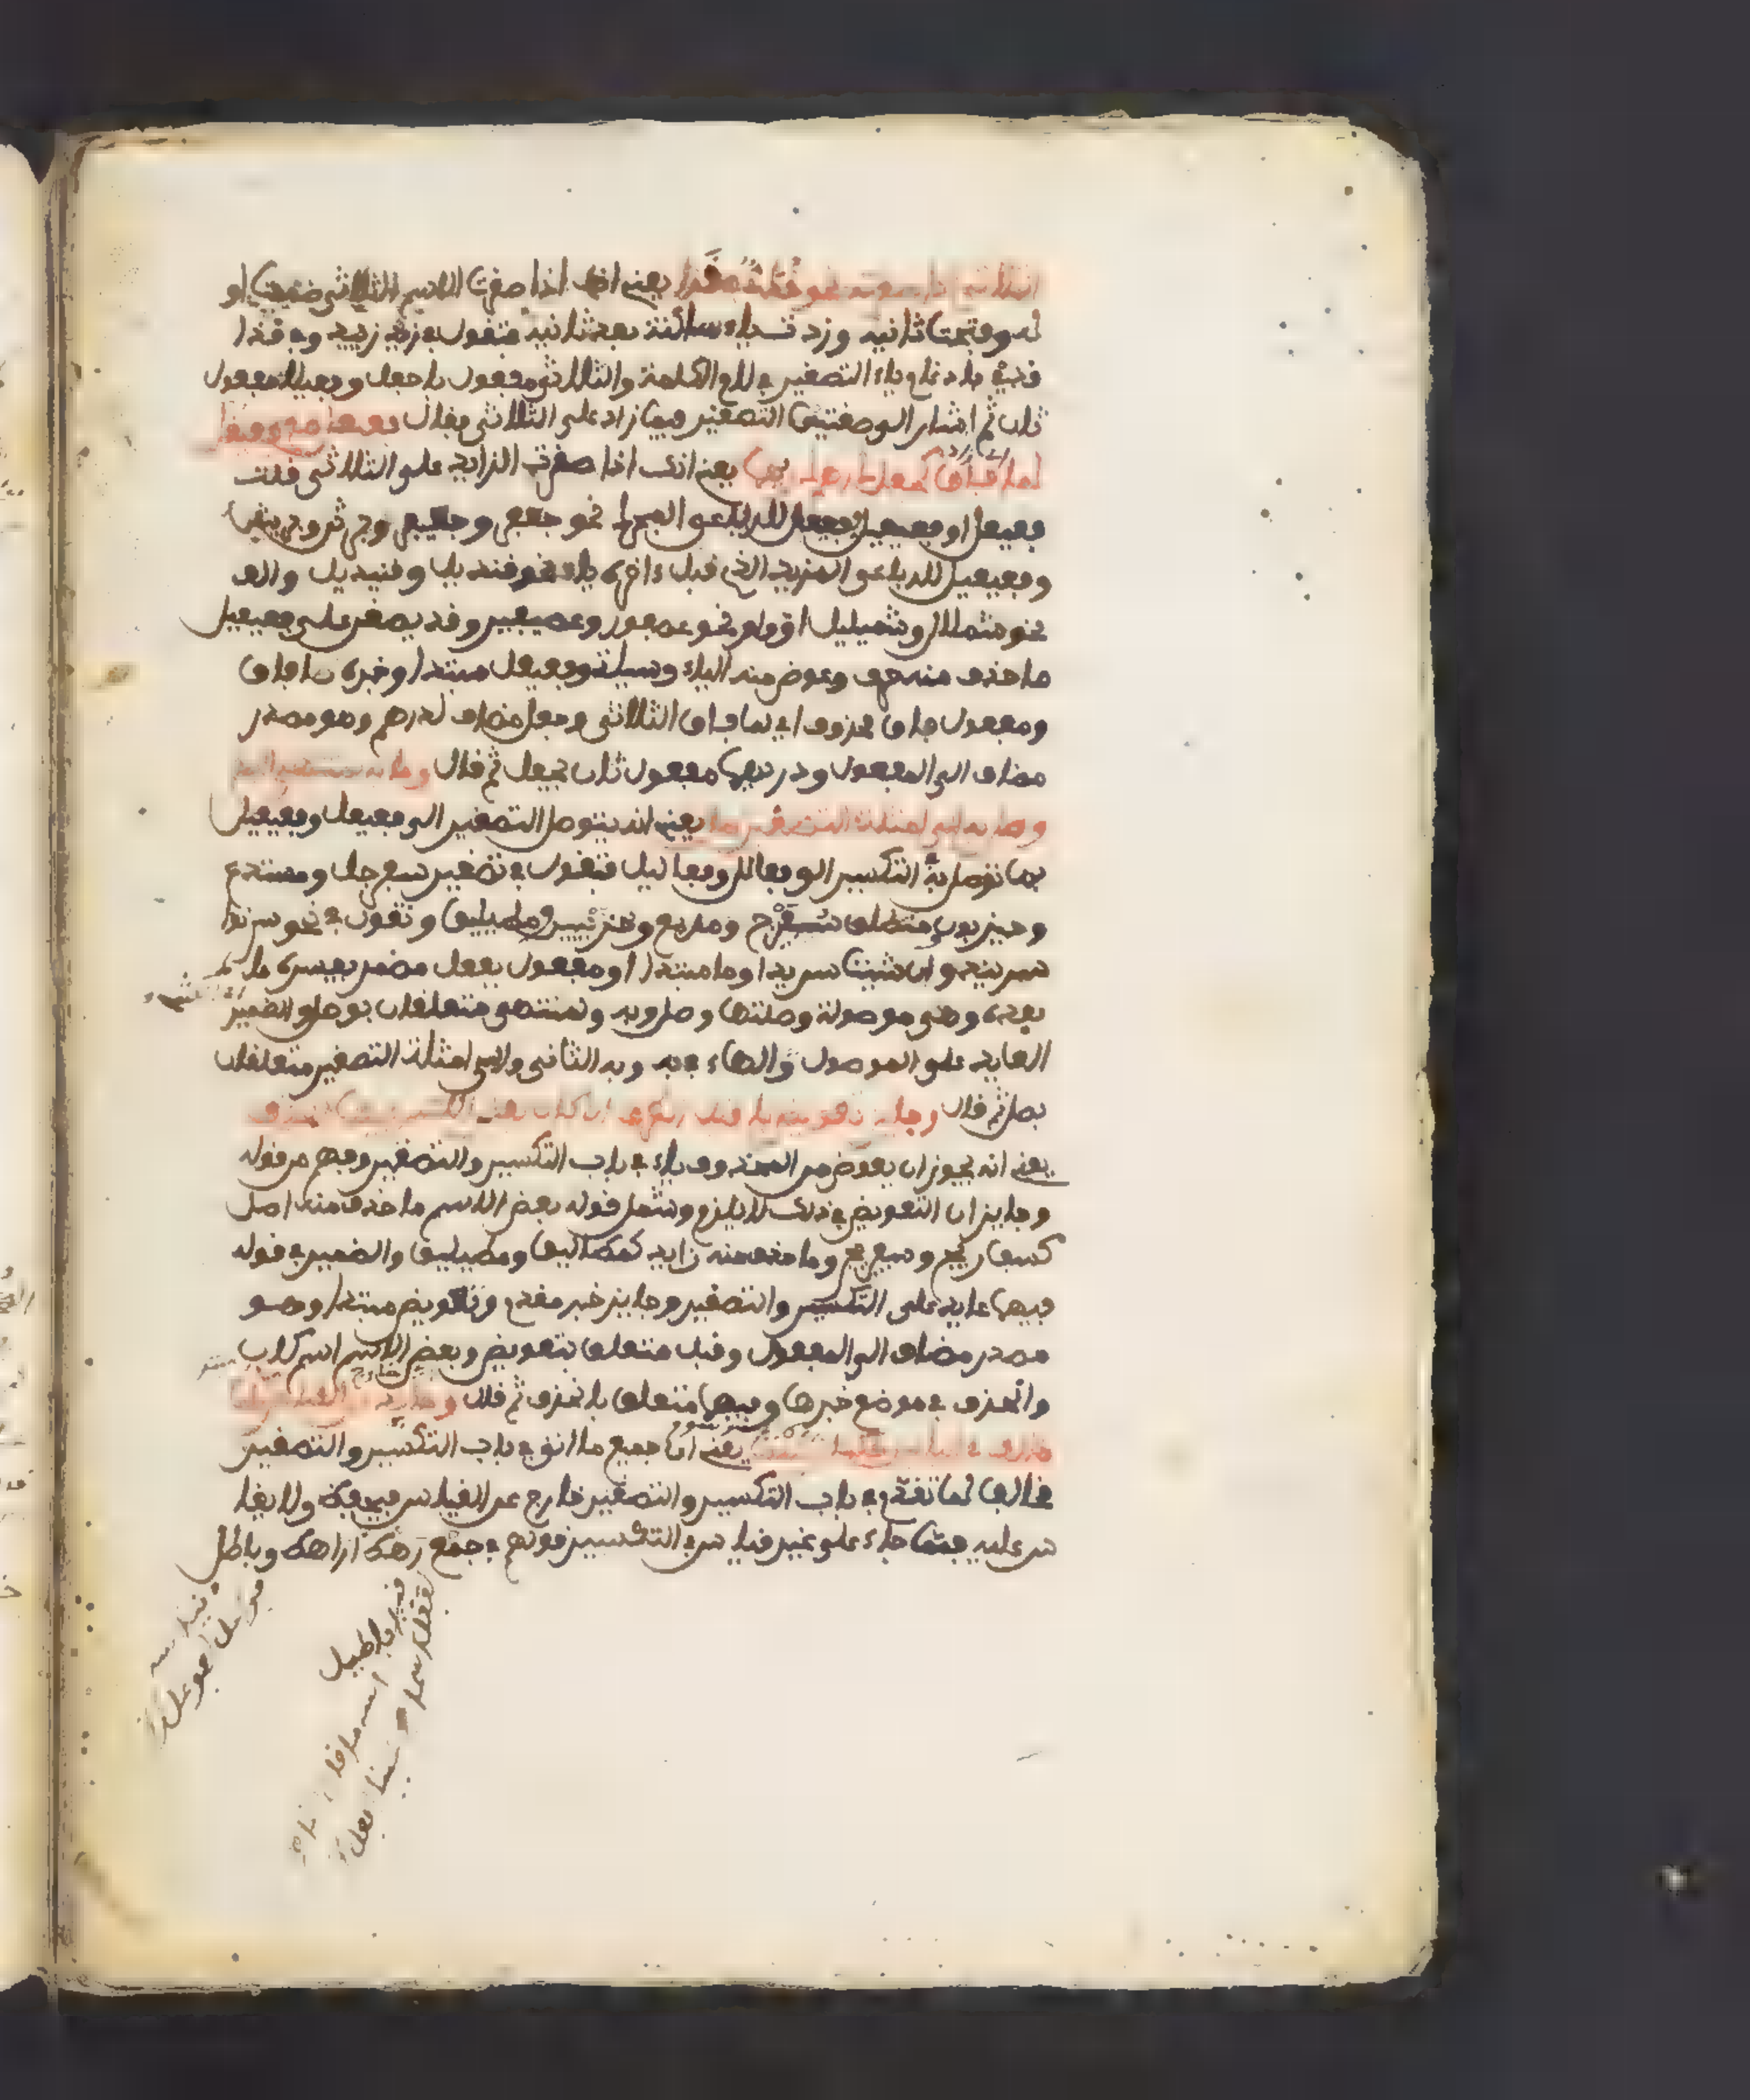 الثلاثي اذا صغرته نحو قذي في قذا يعني انك اذا صغرت الاسم الثلاثي ضممت او
له وفتحت ثانيه وزدت ياء ساكنة بعد ثانيه فتقول في زيد زييد وفي قذا
قذي بادغام ياء التصغير في لام الكلمة والثلاثي مفعول باجعل وفعيلا مفعول
ثان ثم اشار الى صفتي التصغير فيما زاد على الثلاثي فقال فعيعل مع فعيعيل
لما فاق كجعل درهم دريهما يعني انك اذا صغرت الزايد على الثلاثي قلت
فعيعل او فعيعيل ففعيعل للرباعي المجرد نحو جعفر وجعيفر
وفعيعيل للرباعي المزيد الذي قبل ءاخره ياء نحو قنديل وقنيديل والف
نحو شملال وشميليل او واو نحو عصفور وعصيفير وقد يصغر على فعيعيل
ما حذف منه حرف وعوض منه الياء وسياتي وفعيعل مبتدا وخبره لما فاق
ومفعول فاق محذوف اي لما فاق الثلاثي وجعل مضاف لدرهم وهو مصدر
مضاف الى المفعول ودريهما مفعول ثان بجعل ثم قال وما به لمنتهى الجمع
وصل به الى امثلة التصغير صل يعني انه يتوصل التصغير الى فعيعل وفعيعيل
بما توصل به التكسير الى فعالل وفعاليل فتقول في تصغير سفرجل ومستدع
وحيزبون ومنطلق سفيرج ومديع وحزيبين ومطيليق وتقول في نحو سرندا
سريند وان شئت سريد وما مبتدا او مفعول بفعل مضمر يفسره ما
بعده وهي موصولة وصلتها وصل وبه ولمنتهى متعلقان بوصل والضمير
العايد على الموصول الهاء في به وبه الثاني والى امثلة التصغير متعلقان
بصل ثم قال وجايز تعويض يا قبل الطرف ان كان بعض الاسم فيهما انحذف
يعني انه يجوز ان يعوض من المحذوف ياء في باب التكسير والتصغير وفهم من قوله
وجايز ان التعويض في ذلك لا يلزم وشمل قوله بعض الاسم ما حذف منه اصل
كسفاريج وسفيريج وما حذف منه زايد كمطاليق ومطيليق والضمير في قوله
فيهما عايد على التكسير والتصغير وجايز خبر مقدم وتعويض مبتدا وهو
مصدر مضاف الى المفعول وقبل متعلق بتعويض وبعض الاسم اسم كان
وانحذف في موضع خبرها وفيهما متعلق بانحذف ثم قال وحايد عن القياس كل ما
خالف في البابين حكما رسما يعني ان جميع ما اتى في باب التكسير والتصغير
مخالفا لما تقدم في باب التكسير والتصغير خارج عن القياس فيحفظ ولا يقا
س عليه فمما جاء على غير قياس في التكسير قولهم في جمع رهط اراهط وباطل
اباطيل